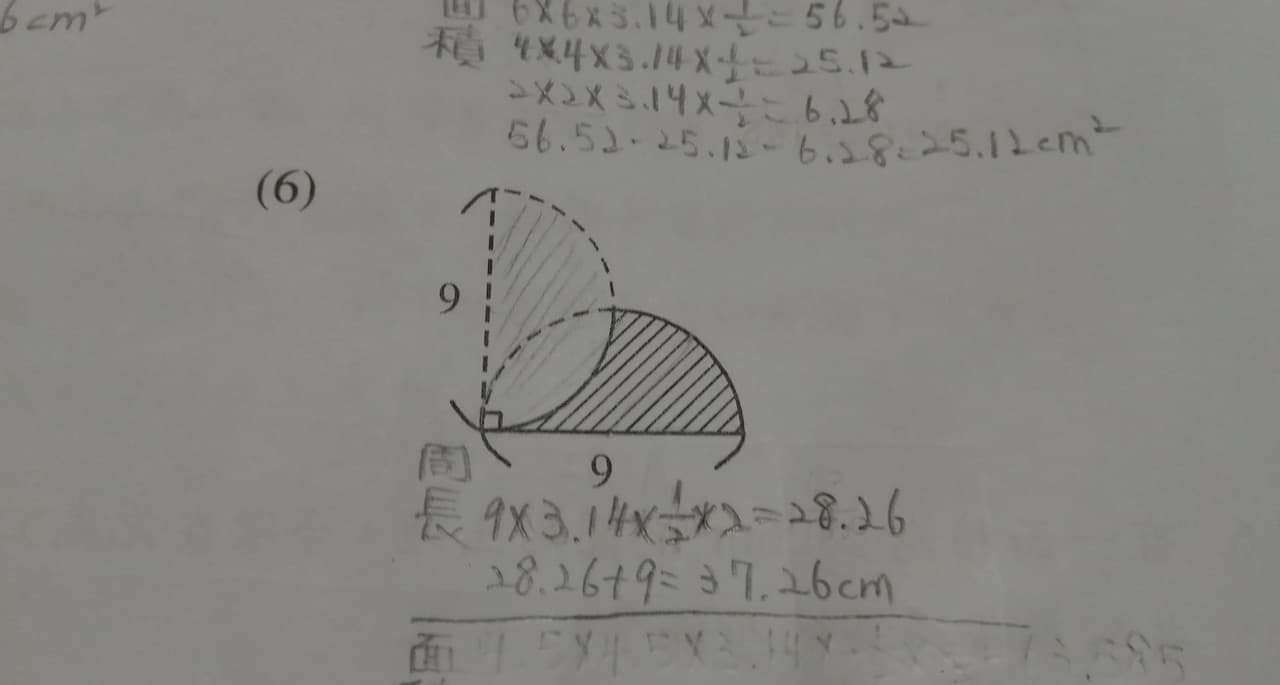 6cm²
面 6×6×3.14×1/2=56.52
積 4×4×3.14×1/2=25.12
2×2×3.14×1/2=6.28
56.52-25.12-6.28=25.12cm²
(6)
9
9
周
長 9×3.14×1/2×2=28.26
28.26+9=37.26cm
面 4.5×4.5×3.14×